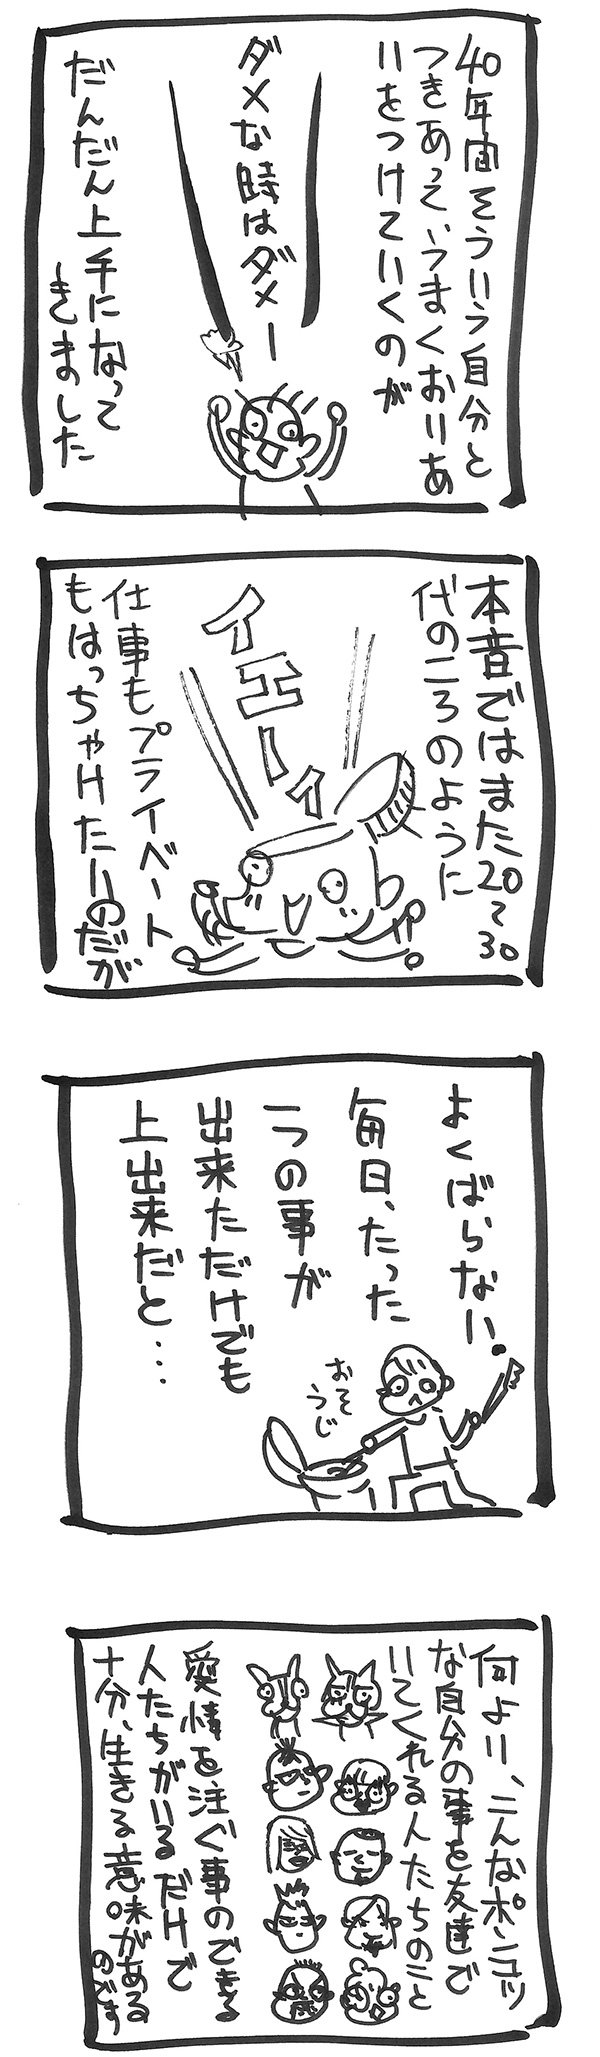 40年間そういう自分と
つきあって、うまくおりあ
いをつけていくのが
ダメな時はダメー
だんだん上手になって
きました
本音ではまた20〜30
代のころのように
イエーイ
仕事もプライベート
もはっちゃけたいのだが
よくばらない。
毎日、たった
一つの事が
出来ただけでも
上出来だと…
おそ
うじ
何より、こんなポンコツ
な自分の事を友達で
いてくれる人たちのこと
愛情を注ぐ事のできる
人たちがいるだけで
十分、生きる意味がある
のです